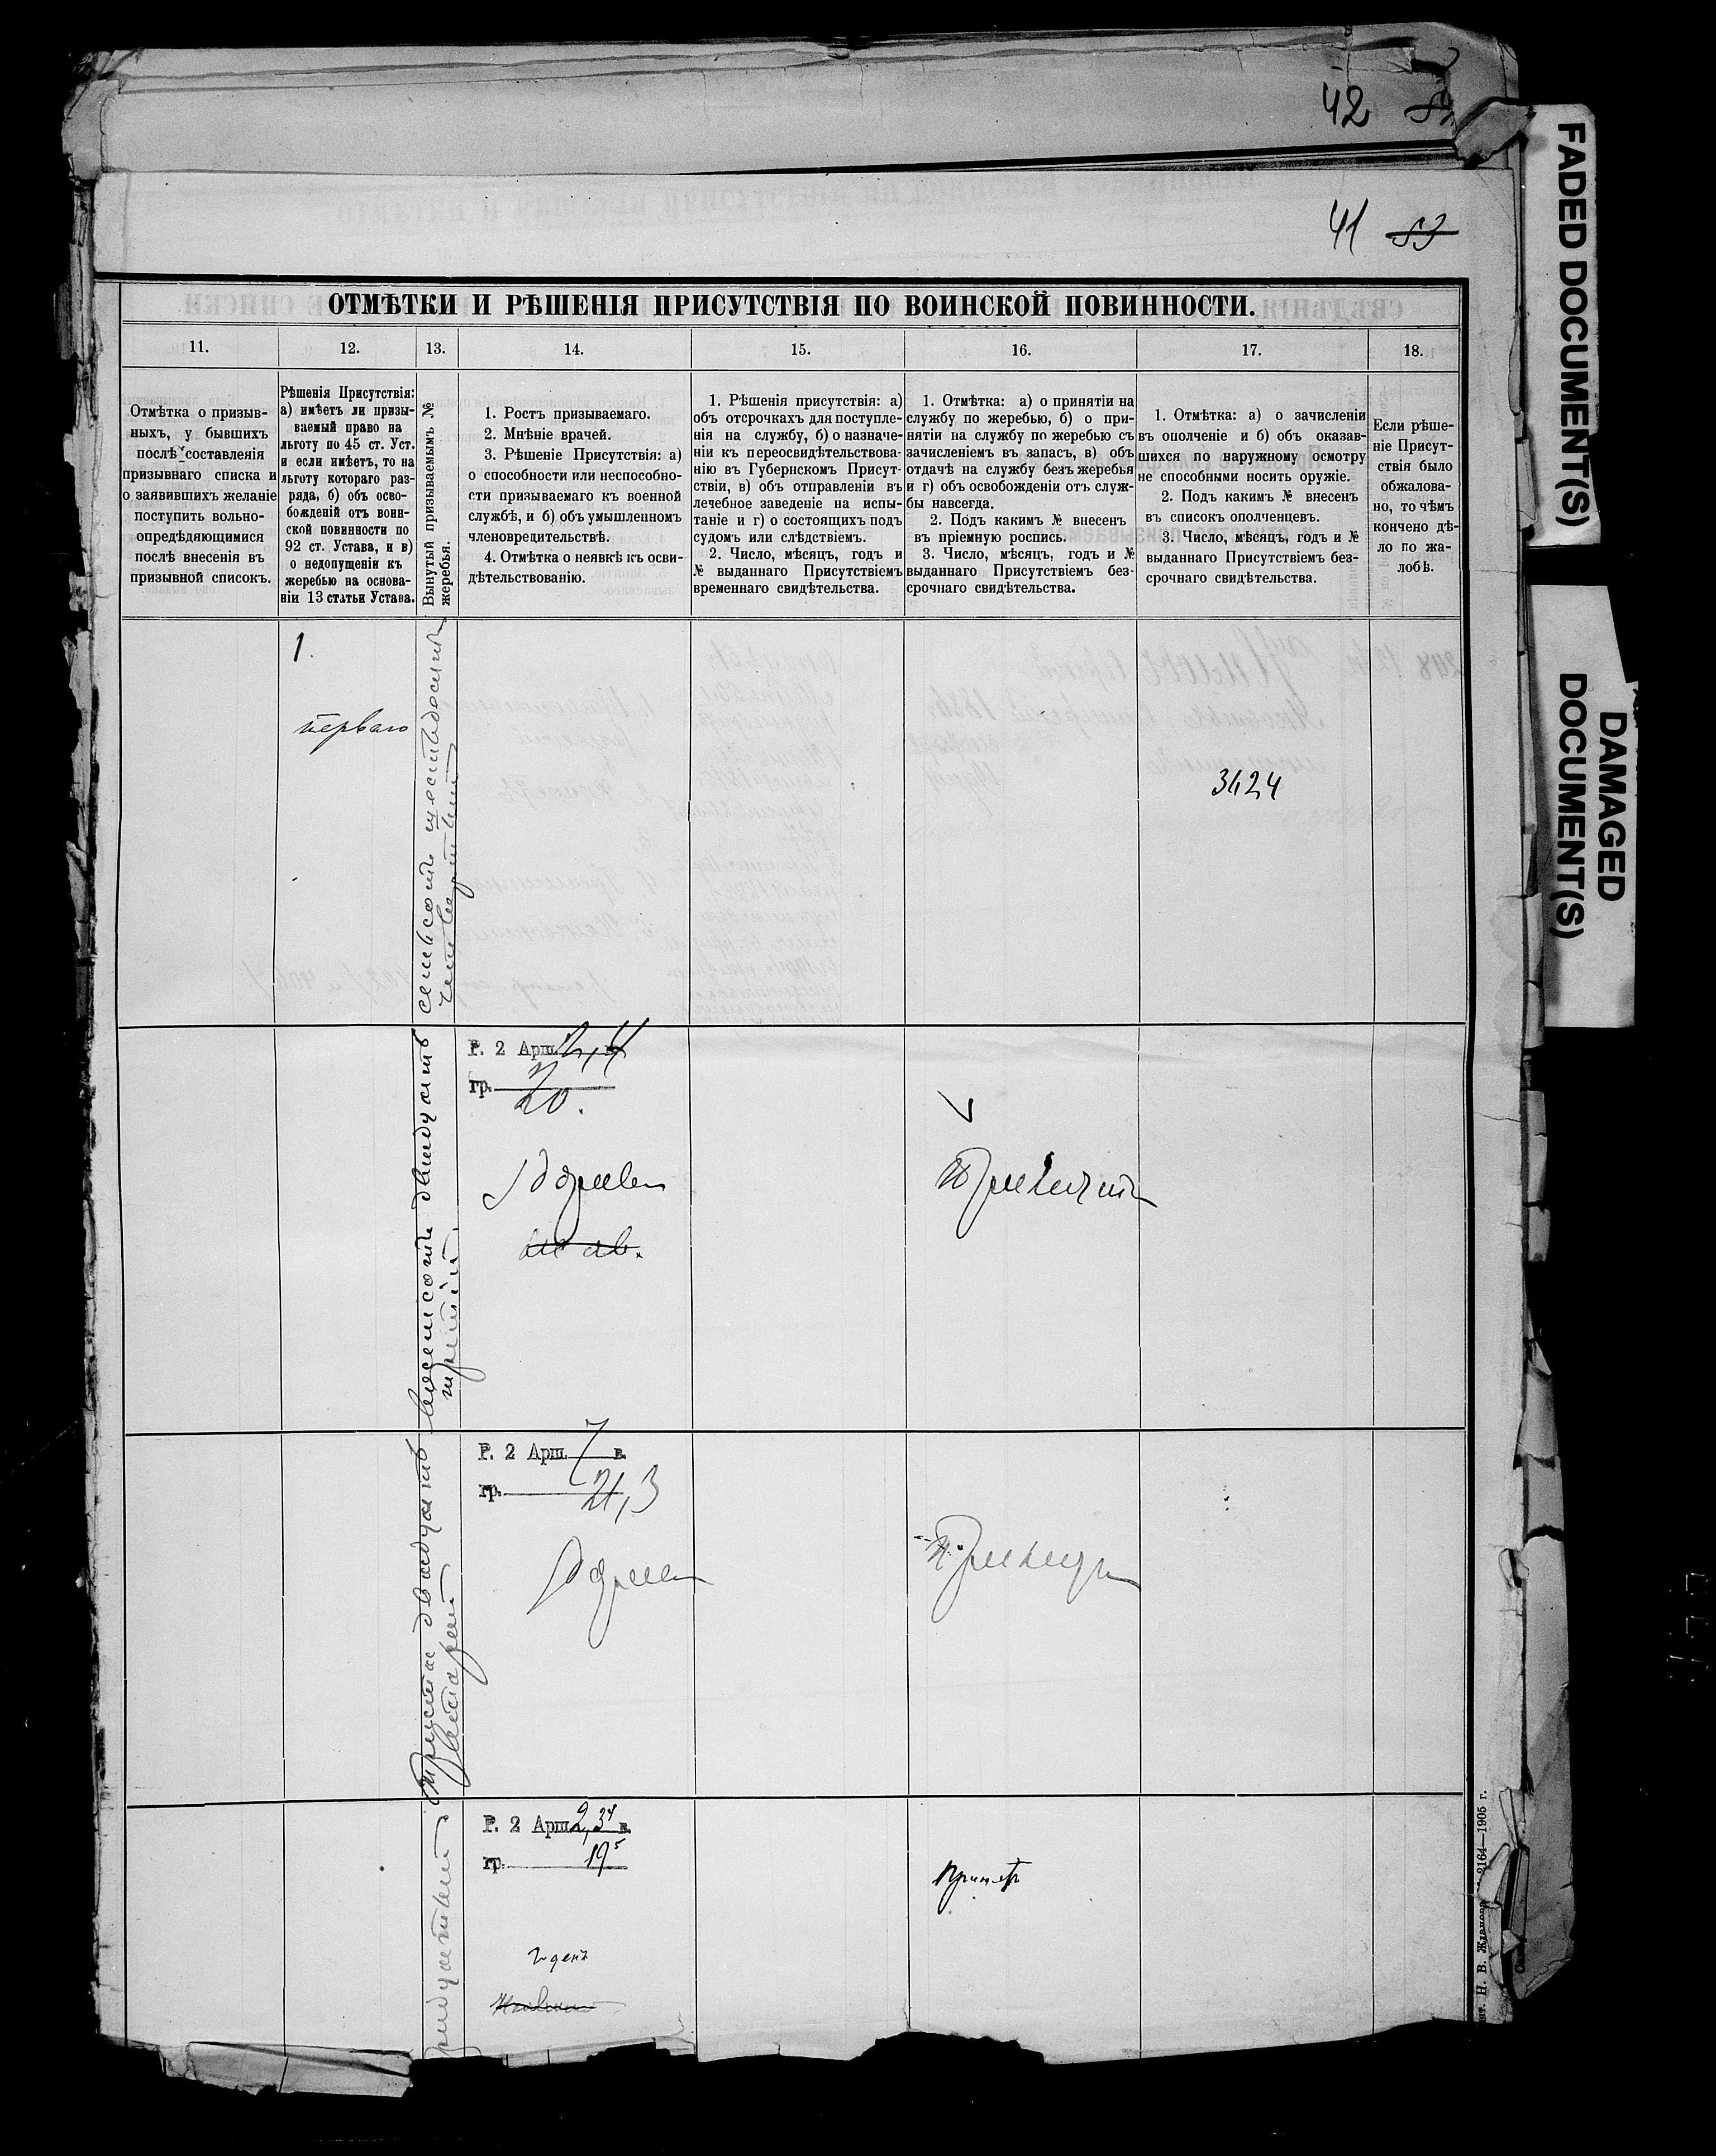 42
41 83
FADED DOCUMENT(S)
DAMAGED
DOCUMENT(S)
ОТМѢТКИ И РѢШЕНІЯ ПРИСУТСТВІЯ ПО ВОИНСКОЙ ПОВИННОСТИ.
11.
12.
13.
14.
15.
16.
17.
18.
Отмѣтка о призыв-
ныхъ, у бывшихъ
послѣ составленія
призывнаго списка и
о заявившихъ желаніе
поступить вольно-
опредѣдяющимися
послѣ внесенія въ
призывной списокъ.
Рѣшенія Присутствія:
а) имѣетъ ли призы-
ваемый право на
льготу по 45 ст. Уст.
и если имѣетъ, то на
льготу котораго раз-
ряда, б) объ осво-
божденій отъ воин-
ской повинности по
92 ст. Устава, и в)
о недопущеніи къ
жеребью на основа-
ніи 13 статьи Устава.
Вынутый призываемымъ №
жеребья.
1. Ростъ призываемаго.
2. Мнѣніе врачей.
3. Рѣшеніе Присутствія: а)
о способности или неспособно-
сти призываемаго къ военной
службѣ, и б) объ умышленномъ
членовредительствѣ.
4. Отмѣтка о неявкѣ къ осви-
дѣтельствованію.
1. Рѣшенія присутствія: а)
объ отсрочкахъ для поступле-
нія на службу, б) о назначе-
ніи къ переосвидѣтельствова-
нію въ Губернскомъ Присут-
ствіи, в) объ отправленіи въ
лечебное заведеніе на испы-
таніе и г) о состоящихъ подъ
судомъ или слѣдствіемъ.
2. Число, мѣсяцъ, годъ и
№ выданнаго Присутствіемъ
временнаго свидѣтельства.
1. Отмѣтка: а) о принятіи на
службу по жеребью, б) о при-
нятіи на службу по жеребью съ
зачисленіемъ въ запасъ, в) объ
отдачѣ на службу безъ жеребья
и г) объ освобожденіи отъ служ-
бы навсегда.
2. Подъ какимъ № внесенъ
въ пріемную роспись.
3. Число, мѣсяцъ, годъ и №
выданнаго Присутствіемъ без-
срочнаго свидѣтельства.
1. Отмѣтка: а) о зачисленіи
въ ополченіе и б) объ оказав-
шихся по наружному осмотру
не способными носить оружіе.
2. Подъ какимъ № внесенъ
въ списокъ ополченцевъ.
3. Число, мѣсяцъ, годъ и №
выданнаго Присутствіемъ без-
срочнаго свидѣтельства.
Если рѣше-
ніе Присут-
ствія было
обжалова-
но, то чѣмъ
кончено дѣ-
ло по жа-
лобѣ.
1.
перваго
семьсотъ шестьдесятъ
четвертый
3424
восемьсотъ двадцать
третій
Р. 2 Арш. 2,4 в.
гр. 20.
Годенъ
Принятъ
Триста двадцать
Р. 2 Арш. 7 в.
гр. 21,3
Годенъ
Принятъ
Р. 2 Арш. 2,34 в.
гр. 19 5
Годенъ
Принятъ
Н. В. Жданова 2164—1905 г.